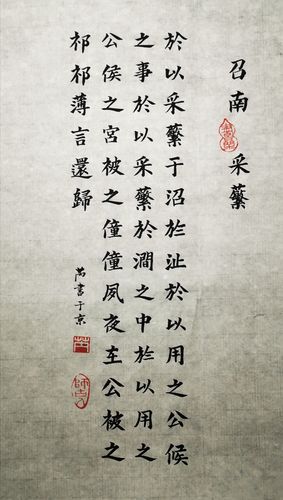 召南 采蘩
於以采蘩于沼於沚於以用之公候
之事於以采蘩於澗之中於以用之
公侯之宮被之僮僮夙夜在公被之
祁祁薄言還歸
書于京